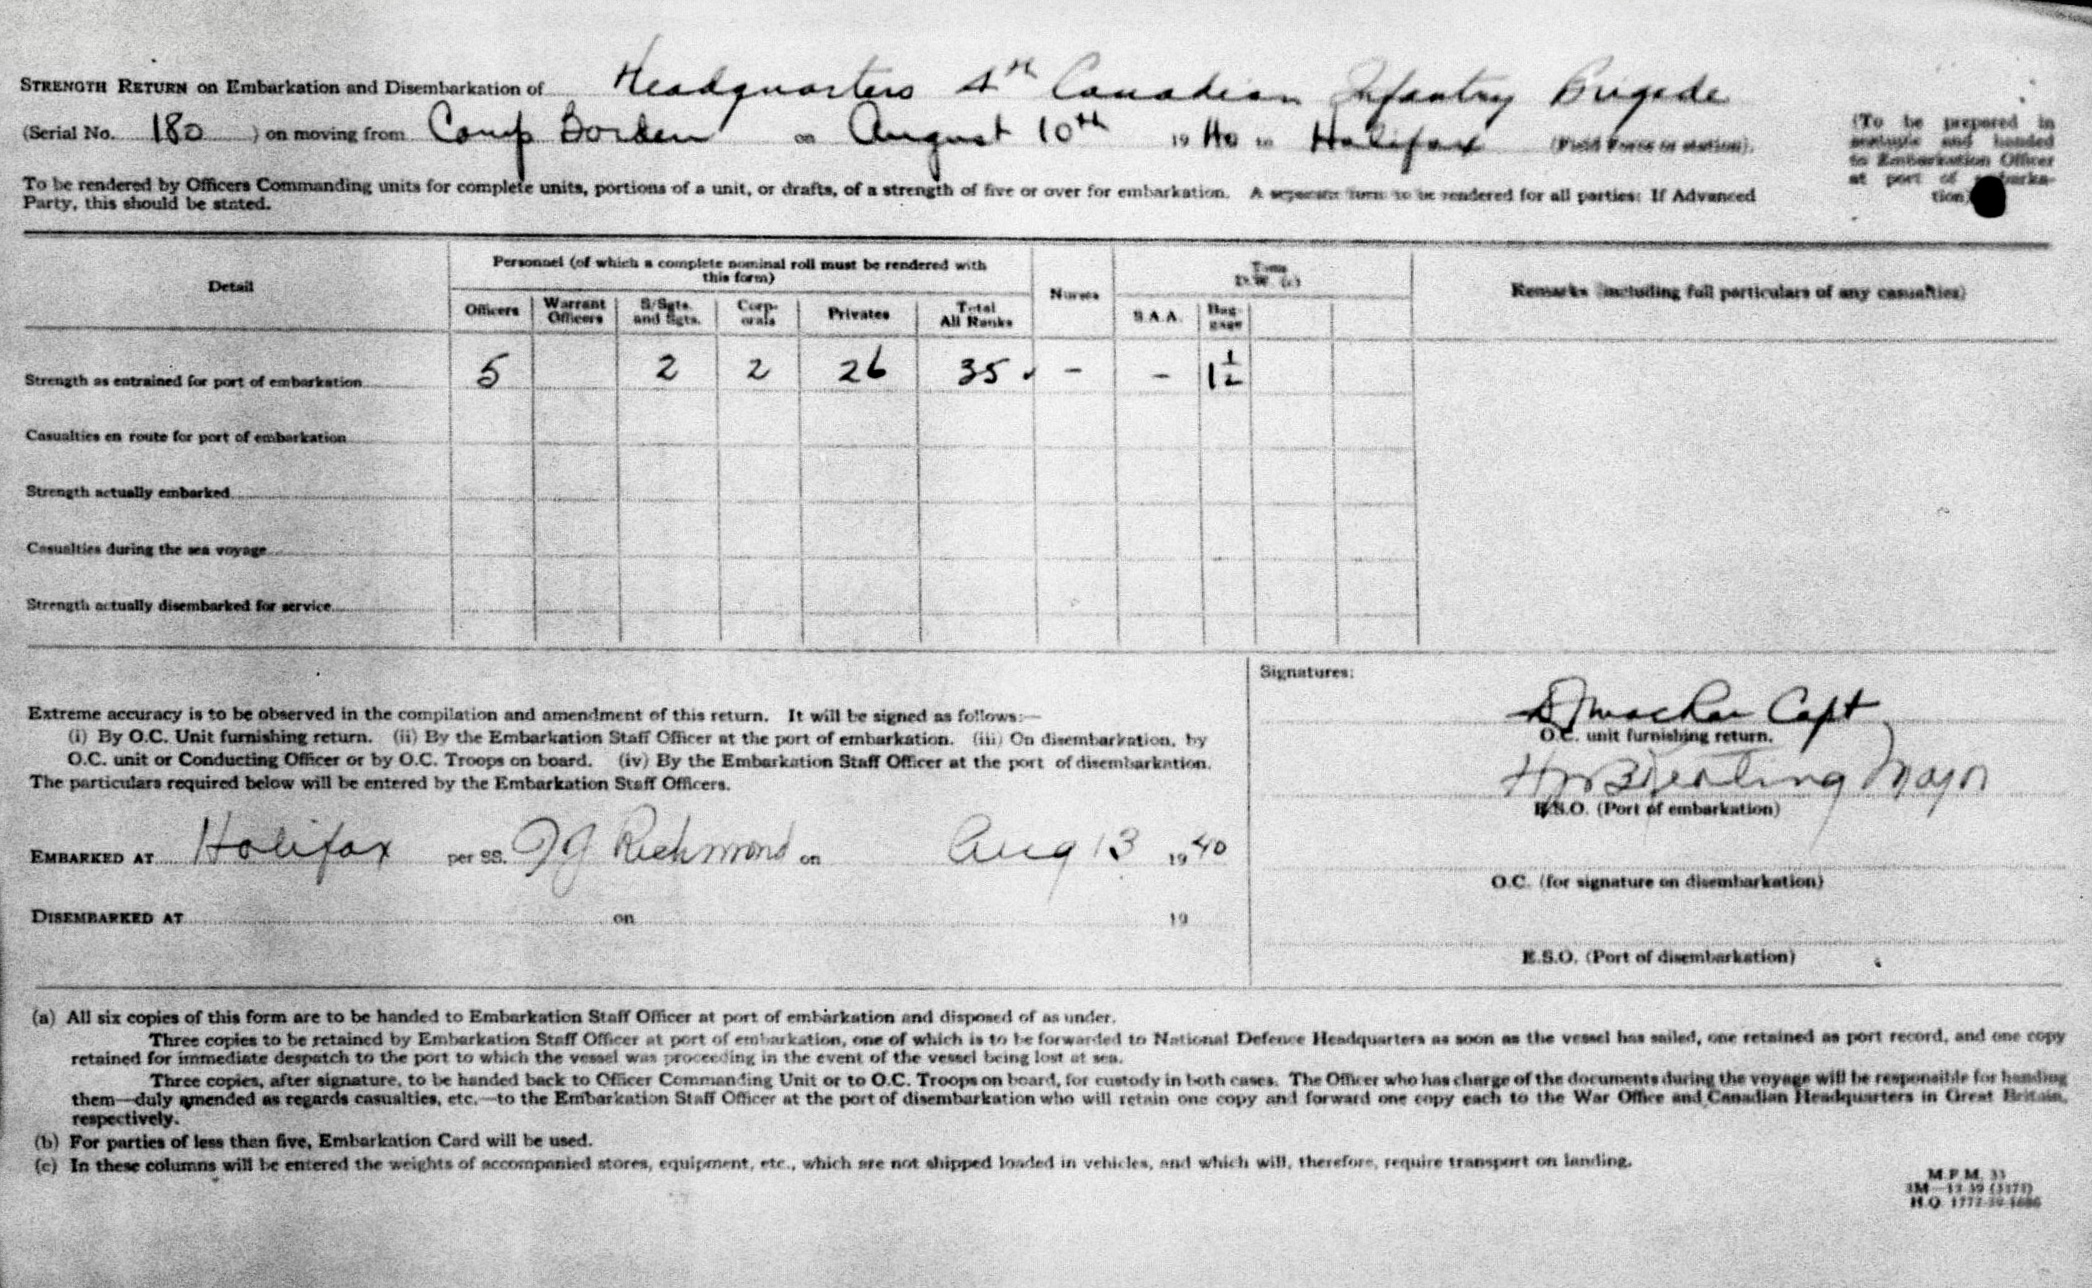 STRENGTH RETURN on Embarkation and Disembarkation of Headquarters 4th Canadian Infantry Brigade
(Serial No. 180 ) on moving from Camp Borden on August 10th 19 40 to Halifax (Field Force or station).
(To be prepared in
and handed
to Embarkation Officer
at port of embarka-
tion)
To be rendered by Officers Commanding units for complete units, portions of a unit, or drafts, of a strength of five or over for embarkation. A separate form to be rendered for all parties: If Advanced
Party, this should be stated.
Detail
Personnel (of which a complete nominal roll must be rendered with
this form)
Officers
Warrant
Officers
S/Sgts.
and Sgts.
Corp-
orals
Privates
Total
All Ranks
Nurses
Tons
D.W. (c)
S.A.A.
Bag-
gage
Remarks (including full particulars of any casualties)
Strength as entrained for port of embarkation 5 2 2 26 35 - - 1½
Casualties en route for port of embarkation
Strength actually embarked
Casualties during the sea voyage
Strength actually disembarked for service
Extreme accuracy is to be observed in the compilation and amendment of this return. It will be signed as follows:—
(i) By O.C. Unit furnishing return. (ii) By the Embarkation Staff Officer at the port of embarkation. (iii) On disembarkation, by
O.C. unit or Conducting Officer or by O.C. Troops on board. (iv) By the Embarkation Staff Officer at the port of disembarkation.
The particulars required below will be entered by the Embarkation Staff Officers.
EMBARKED AT Halifax per SS. Richmond on Aug 13 19 40
DISEMBARKED AT on 19
Signatures:
Capt
O.C. unit furnishing return.
Major
E.S.O. (Port of embarkation)
O.C. (for signature on disembarkation)
E.S.O. (Port of disembarkation)
(a) All six copies of this form are to be handed to Embarkation Staff Officer at port of embarkation and disposed of as under.
Three copies to be retained by Embarkation Staff Officer at port of embarkation, one of which is to be forwarded to National Defence Headquarters as soon as the vessel has sailed, one retained as port record, and one copy
retained for immediate despatch to the port to which the vessel was proceeding in the event of the vessel being lost at sea.
Three copies, after signature, to be handed back to Officer Commanding Unit or to O.C. Troops on board, for custody in both cases. The Officer who has charge of the documents during the voyage will be responsible for handing
them—duly amended as regards casualties, etc.—to the Embarkation Staff Officer at the port of disembarkation who will retain one copy and forward one copy each to the War Office and Canadian Headquarters in Great Britain,
respectively.
(b) For parties of less than five, Embarkation Card will be used.
(c) In these columns will be entered the weights of accompanied stores, equipment, etc., which are not shipped loaded in vehicles, and which will, therefore, require transport on landing.
M.F.M. 33
H.Q.